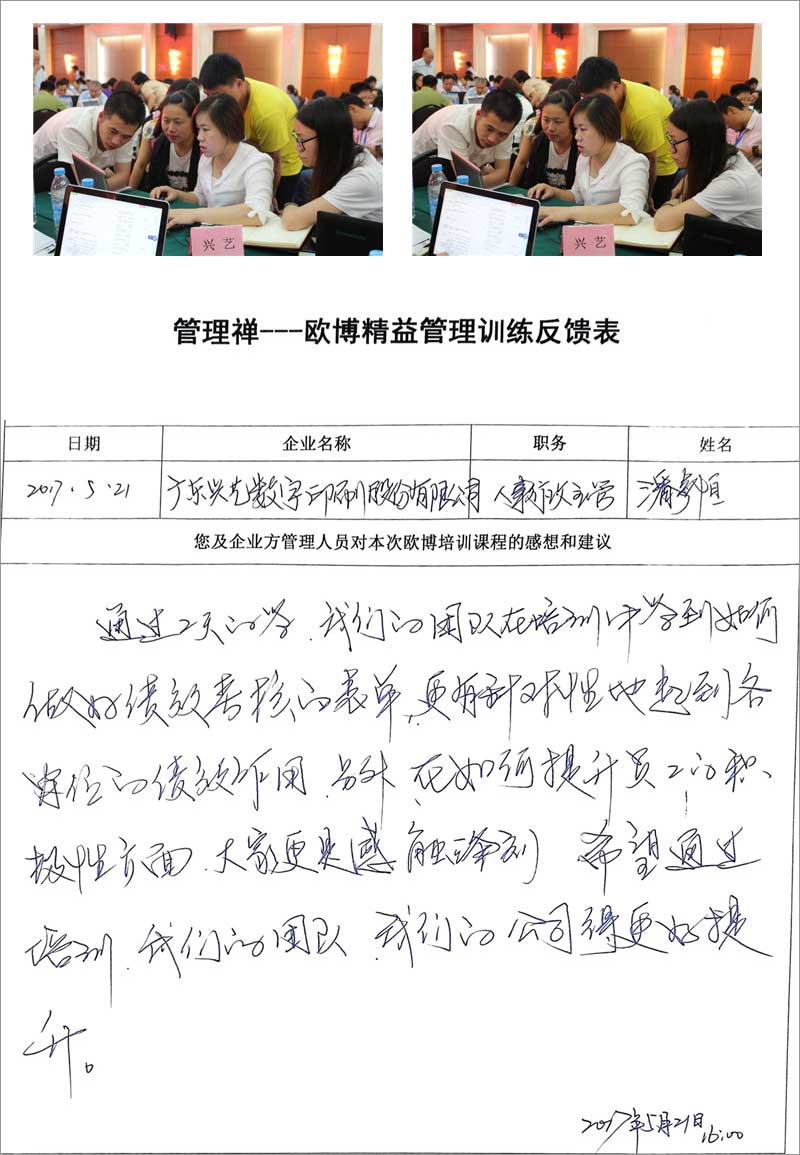 兴艺
兴艺
管理禅---欧博精益管理训练反馈表
日期 企业名称 职务 姓名
2017.5.21 广东兴艺数字印刷股份有限公司 人事行政主管 潘
您及企业方管理人员对本次欧博培训课程的感想和建议
通过2天的学,我们的团队在培训中学到如何
做好绩效考核的表单,更有针对性地起到各
岗位的绩效作用.另外,在如何提升员工的积、
极性方面,大家更是感触深刻 希望通过
培训,我们的团队,我们的公司得更好提
升。
2017年5月21日 16:00